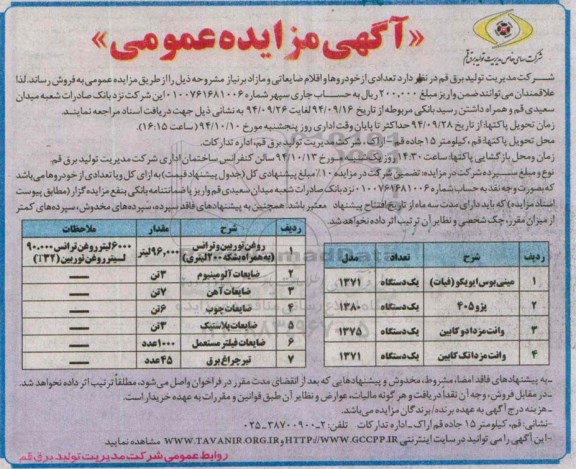 شرکت سهامی خاص مدیریت تولید برق قم
«آگهی مزایده عمومی»
شرکت مدیریت تولید برق قم در نظر دارد تعدادی از خودروها و اقلام ضایعاتی و مازاد بر نیاز مشروحه ذیل را از طریق مزایده عمومی به فروش رساند. لذا
علاقمندان می‌توانند ضمن واریز مبلغ ۲۰۰،۰۰۰ ریال به حساب جاری سپهر شماره ۰۱۰۰۷۶۱۶۸۱۰۰۶ این شرکت نزد بانک صادرات شعبه میدان
سعیدی قم و همراه داشتن رسید بانکی مربوطه از تاریخ ۹۴/۰۹/۱۶ لغایت ۹۴/۰۹/۲۶ به نشانی ذیل جهت دریافت اسناد مراجعه نمایند.
زمان تحویل پاکتها: از تاریخ ۹۴/۰۹/۲۸ حداکثر تا پایان وقت اداری روز پنجشنبه مورخ ۹۴/۱۰/۱۰ (ساعت ۱۶:۱۵)
محل تحویل پاکتها: قم، کیلومتر ۱۵ جاده قم - اراک، شرکت مدیریت تولید برق قم، اداره تدارکات.
زمان ومحل بازگشایی پاکتها: ساعت ۱۴:۳۰ روز یکشنبه مورخ ۹۴/۱۰/۱۳ سالن کنفرانس ساختمان اداری شرکت مدیریت تولید برق قم.
نوع و مبلغ سپرده شرکت در مزایده: تضمین شرکت در مزایده ۱۰٪ مبلغ پیشنهادی کل (جدول پیشنهاد قیمت) به ازای کل و یا تعدادی از خودروها می‌باشد
که بصورت وجه نقد به حساب شماره ۰۱۰۰۷۶۱۶۸۱۰۰۶ نزد بانک صادرات شعبه میدان سعیدی قم واریز یا ضمانتنامه بانکی بنفع مزایده گزار (مطابق پیوست
اسناد مزایده) که باید دارای مدت سه ماه از تاریخ افتتاح پیشنهاد معتبر باشد. همچنین به پیشنهادهای فاقد سپرده، سپرده‌های مخدوش، سپرده‌های کمتر
از میزان مقرر، چک شخصی و نظایر آن ترتیب اثر داده نخواهد شد.
ردیف شرح تعداد مدل
۱ مینی بوس ایویکو (فیات) یک دستگاه ۱۳۷۱
۲ پژو ۴۰۵ یک دستگاه ۱۳۸۰
۳ وانت مزدا دو کابین یک دستگاه ۱۳۷۵
۴ وانت مزدا تک کابین یک دستگاه ۱۳۷۱
ردیف شرح مقدار ملاحظات
۱ روغن توربین و ترانس (به همراه بشکه ۲۰۰ لیتری) ۹۶،۰۰۰ لیتر ۶۰۰۰ لیتر روغن ترانس ۹۰،۰۰۰ لیتر روغن توربین (۳۲٪)
۲ ضایعات آلومینیوم ۳ تن —
۳ ضایعات آهن ۷ تن —
۴ ضایعات چوب ۶ تن —
۵ ضایعات پلاستیک ۳ تن —
۶ ضایعات فیلتر مستعمل ۱۰۰۰ عدد —
۷ تیر چراغ برق ۴۵ عدد —
-به پیشنهادهای فاقد امضا، مشروط، مخدوش و پیشنهادهایی که بعد از انقضای مدت مقرر در فراخوان واصل می‌شود، مطلقاً ترتیب اثر داده نخواهد شد.
-در مقابل فروش، وجه آن نقداً دریافت و هر گونه مالیات، عوارض و نظایر آن طبق قوانین و مقررات به عهده خریدار است.
-هزینه درج آگهی به عهده برنده/برندگان مزایده می‌باشد.
-نشانی: قم، کیلومتر ۱۵ جاده قم اراک - اداره تدارکات تلفن: ۲-۳۸۷۰۰۹۰۰-۰۲۵
-این آگهی را می توانید در سایت اینترنتی HTTP://WWW.GCCPP.IR و WWW.TAVANIR.ORG.IR مشاهده نمایید
روابط عمومی شرکت مدیریت تولید برق قم